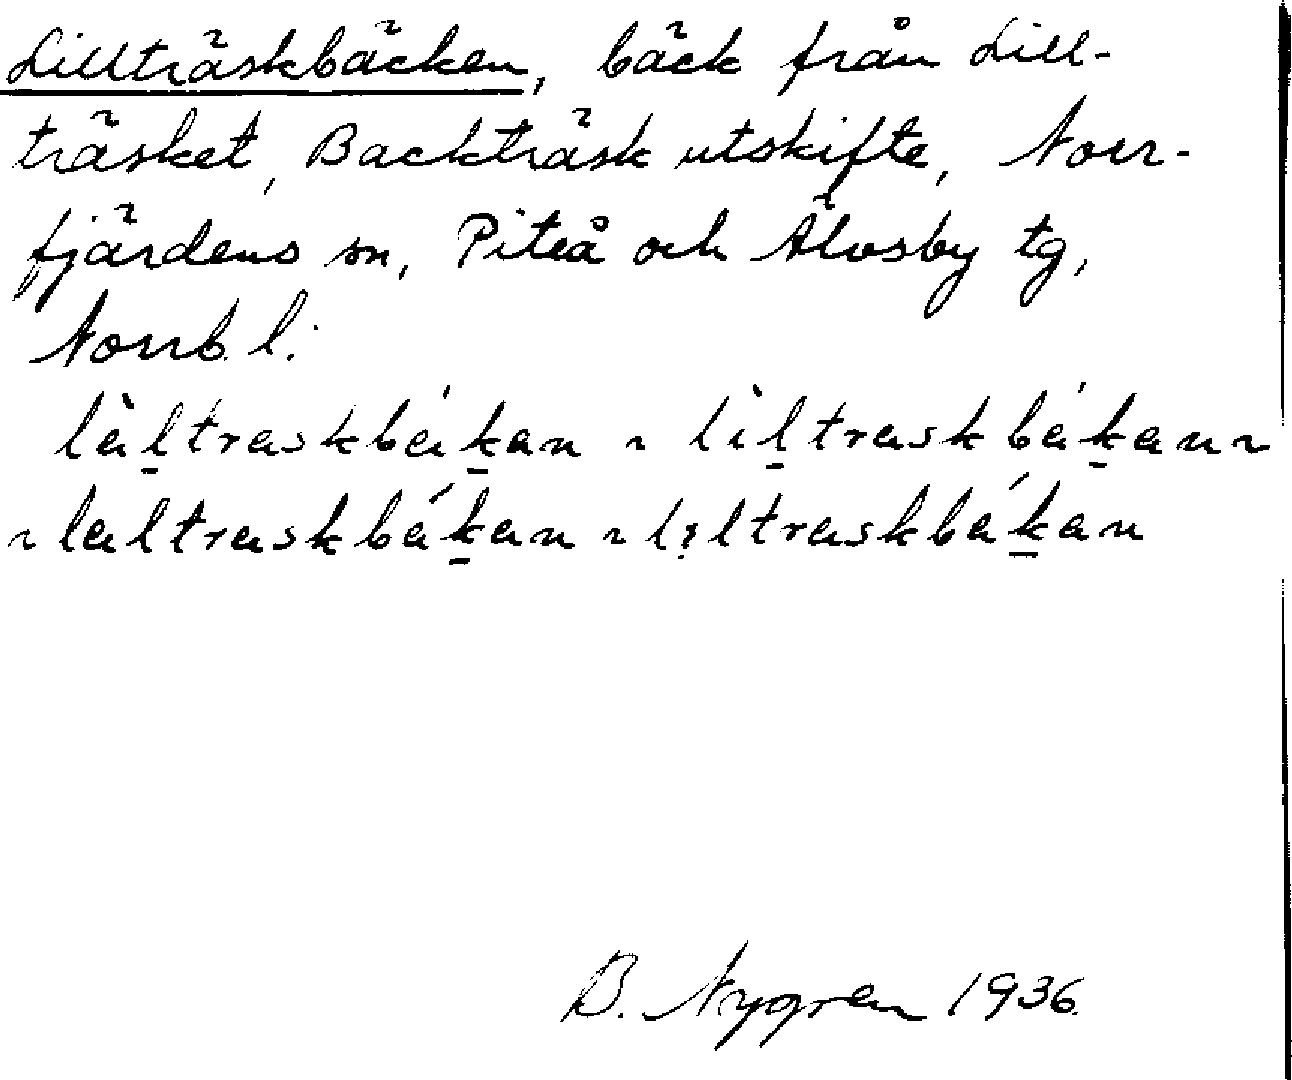 Lillträskbäcken, bäck från Lill-
träsket, Backträsk utskifte, Norr-
fjärdens sn, Piteå och Älvsby tg,
Norrb. l.
làl̲traskbák̲an ~ lìl̲traskbák̲an ~
~ laltraskbák̲an ~ lı̣ltraskbák̲an
B. Nygren 1936.